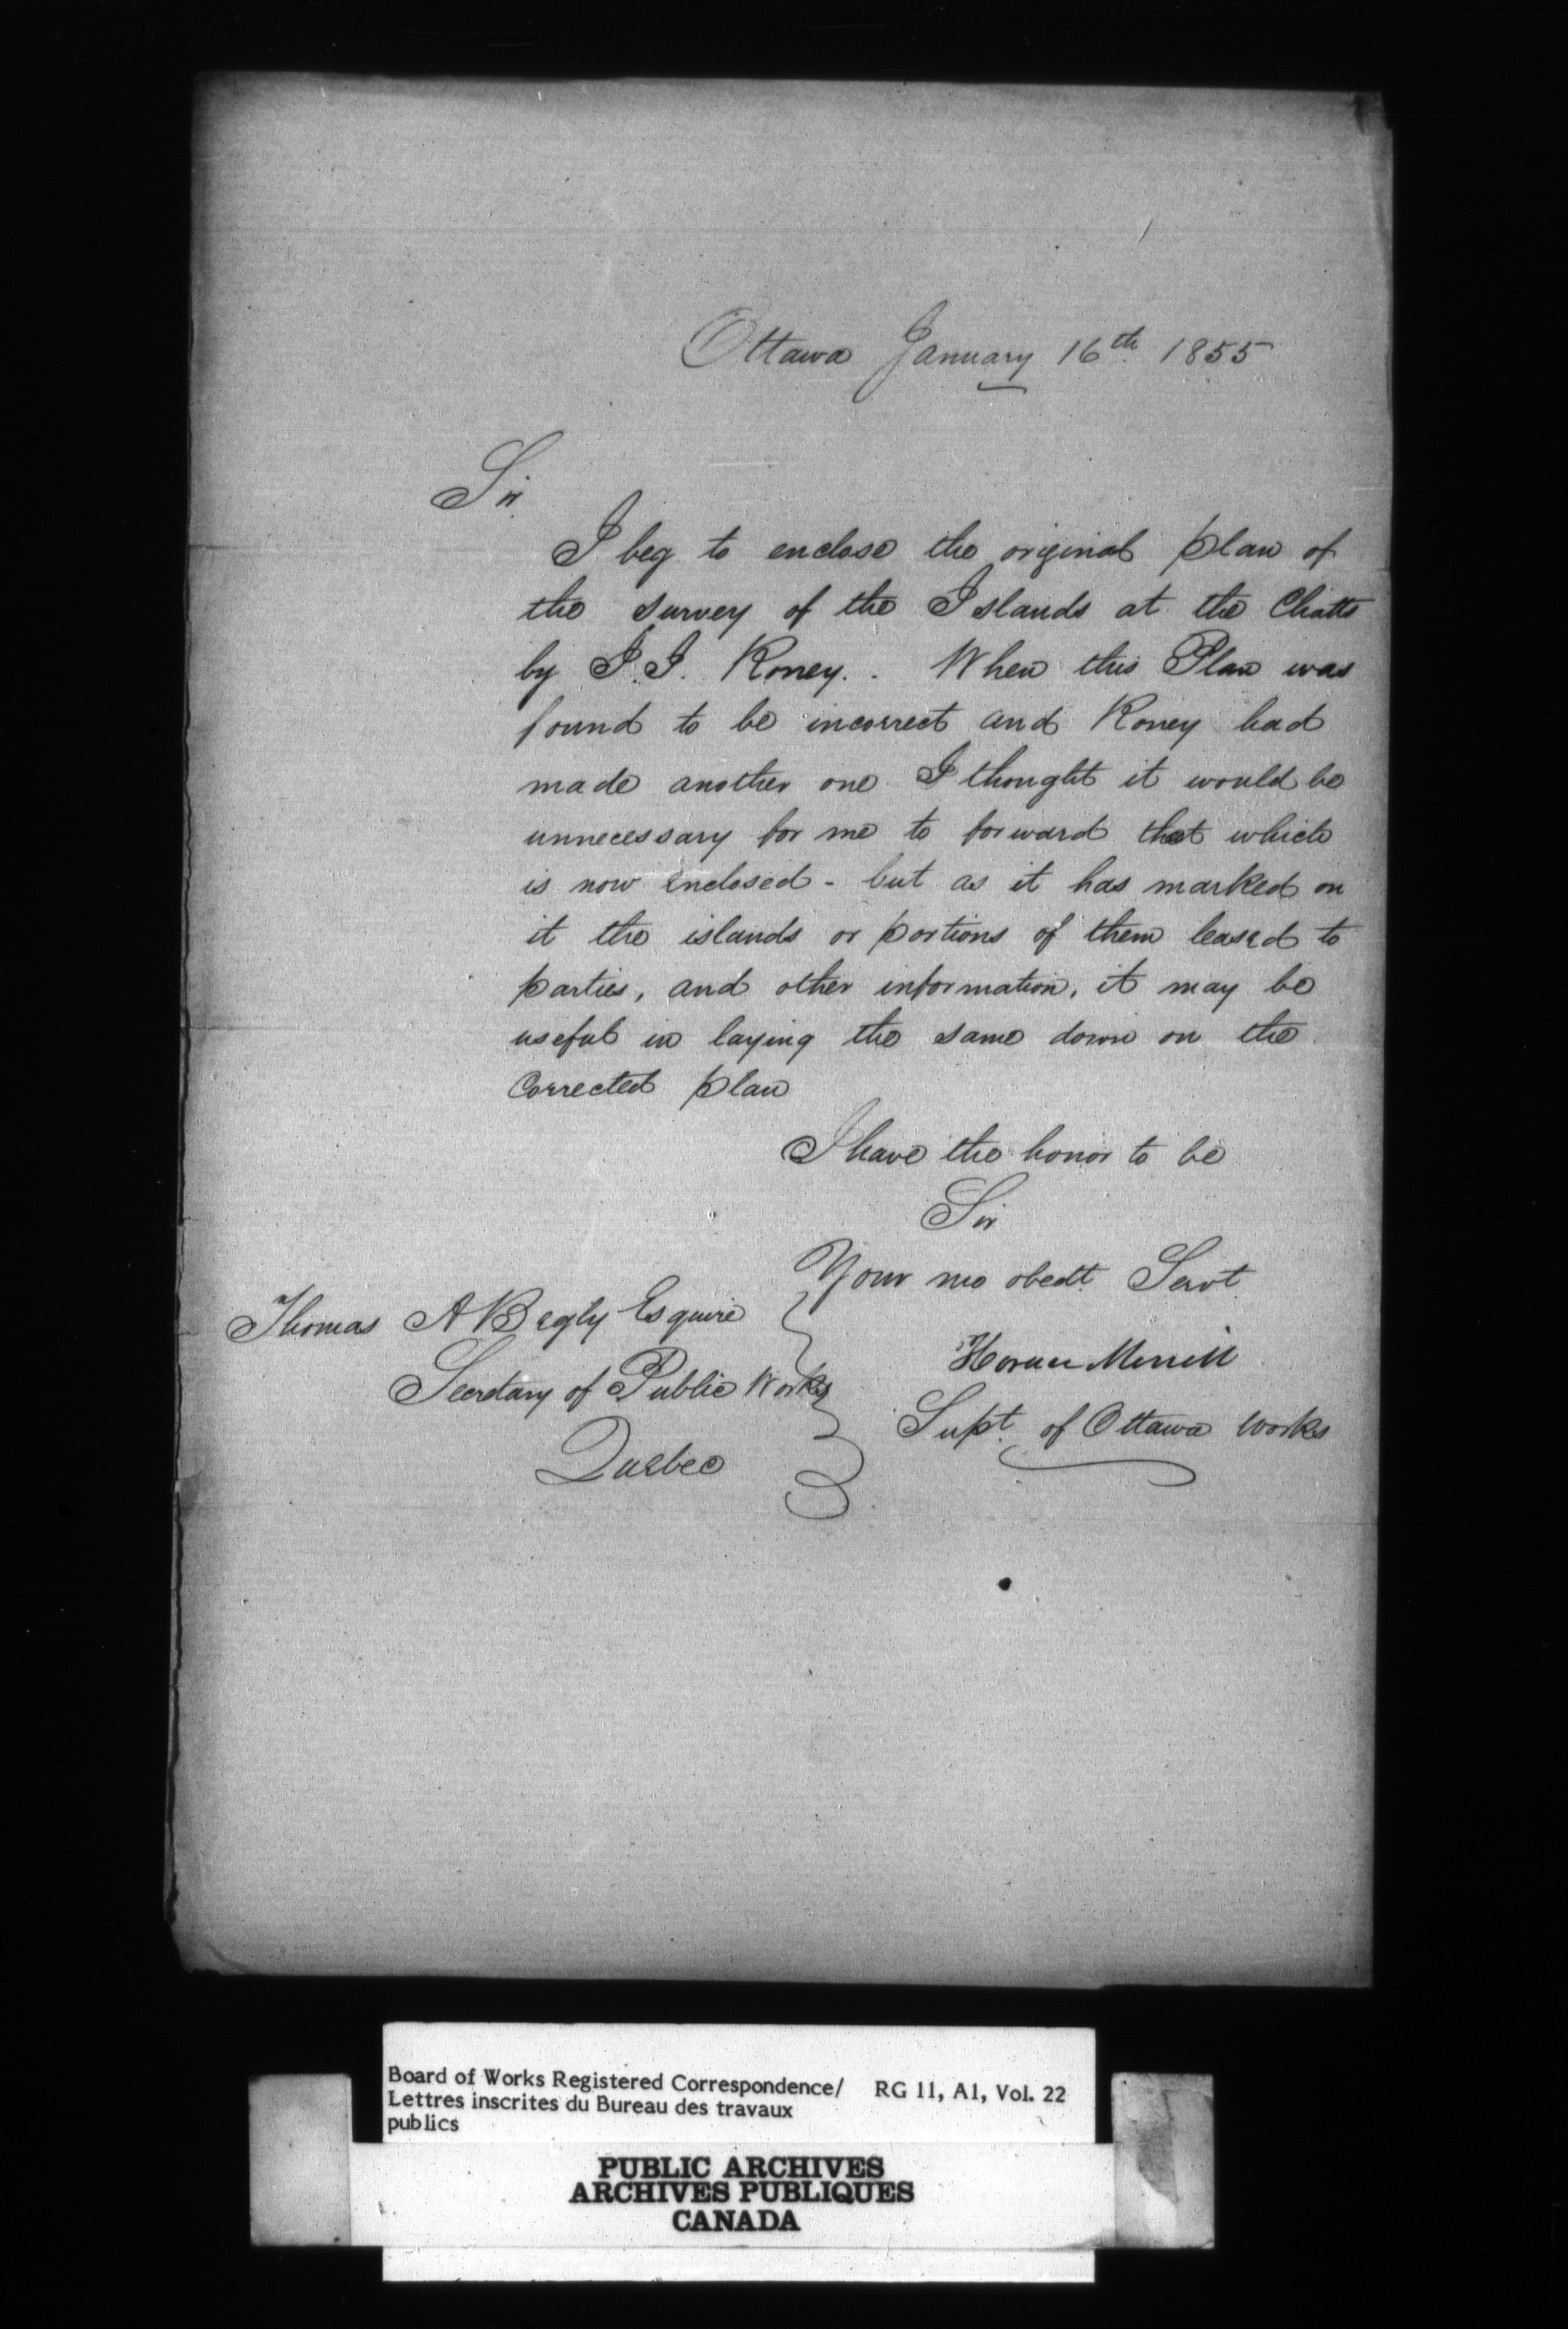 Ottawa January 16th 1855
Sir
I beg to enclose the original plan of
the survey of the Islands at the Chatts
by J. J. Roney. When this Plan was
found to be incorrect and Roney had
made another one I thought it would be
unnecessary for me to forward that which
is now enclosed - but as it has marked on
it the islands or portions of them leased to
parties, and other information, it may be
useful in laying the same down on the
Corrected plan
I have the honor to be
Sir
Your mo obedt. Servt.
Thomas A Begly Esquire
Horace Merrill
Secretary of Public Works
Supt. of Ottawa Works
Quebec
Board of Works Registered Correspondence/ RG 11, A1, Vol. 22
Lettres inscrites du Bureau des travaux
publics
PUBLIC ARCHIVES
ARCHIVES PUBLIQUES
CANADA